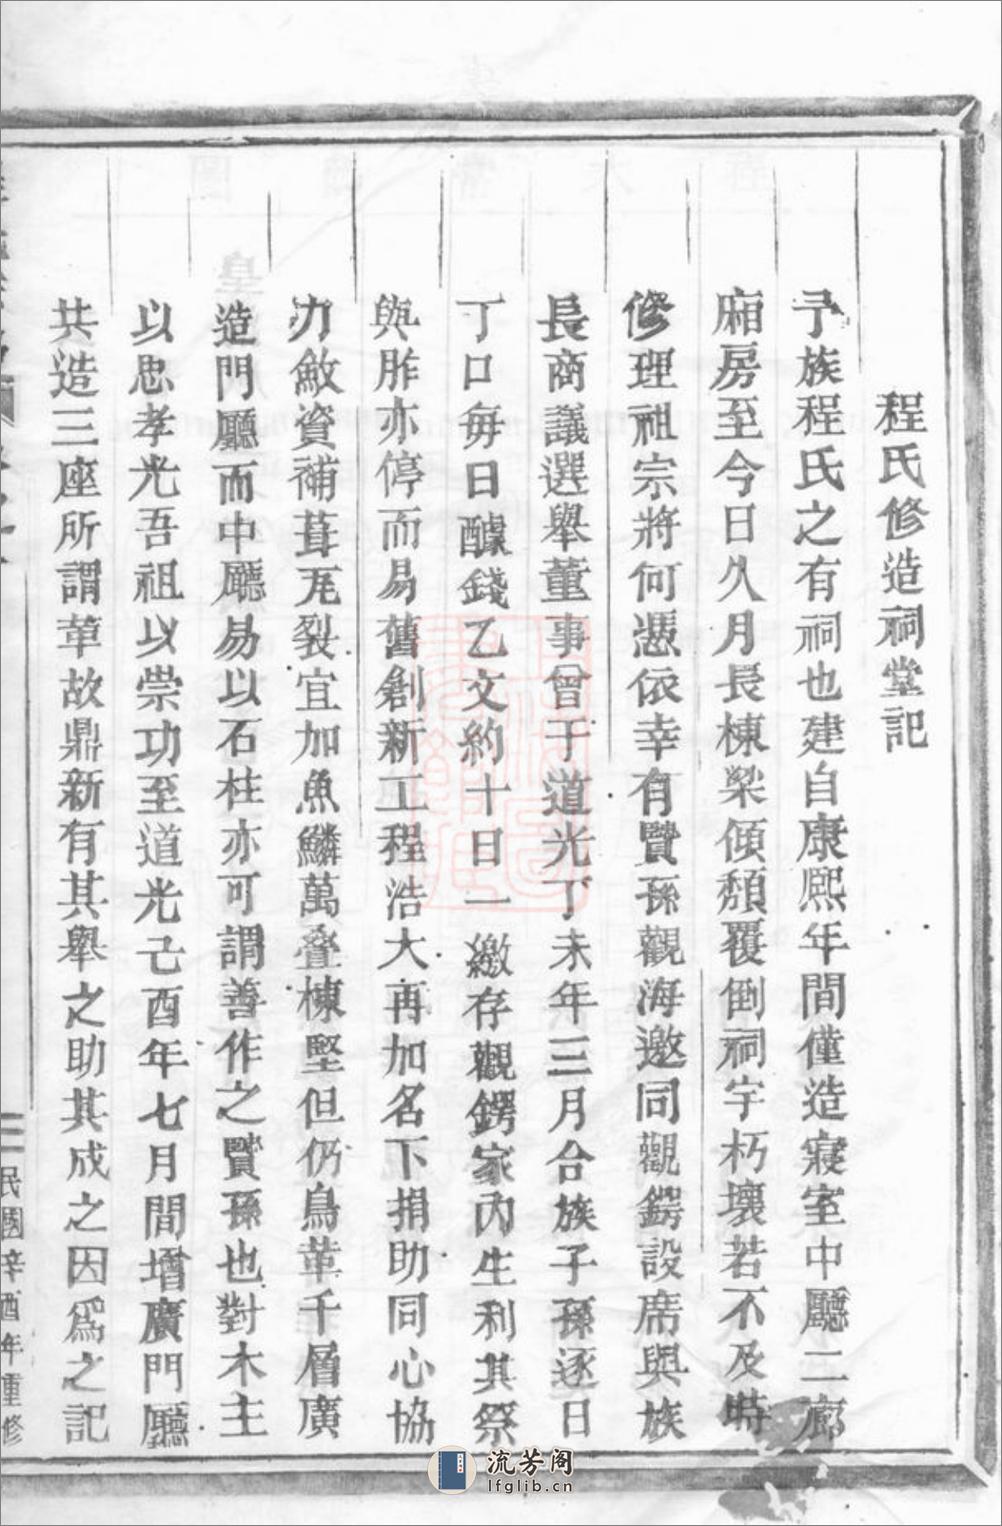 程氏修造祠堂記
予族程氏之有祠也建自康熙年間僅造寢室中廳二廊
廂房至今日久月長棟梁傾頹覆倒祠宇朽壞若不及時
修理祖宗將何憑依幸有賢孫觀海邀同觀鍔設席與族
長商議選舉董事曾于道光丁未年三月合族子孫逐日
丁口每日醵錢乙文約十日一繳存觀鍔家內生利其祭
與胙亦停而易舊創新工程浩大再加名下捐助同心協
力斂資補葺瓦裂宜加魚鱗萬疊棟堅但仍鳥革千層廣
造門廳而中廳易以石柱亦可謂善作之賢孫也對木主
以忠孝光吾祖以崇功至道光己酉年七月間增廣門廳
共造三座所謂革故鼎新有其舉之助其成之因爲之記
民國辛酉年重修
流芳阁
lfglib.cn